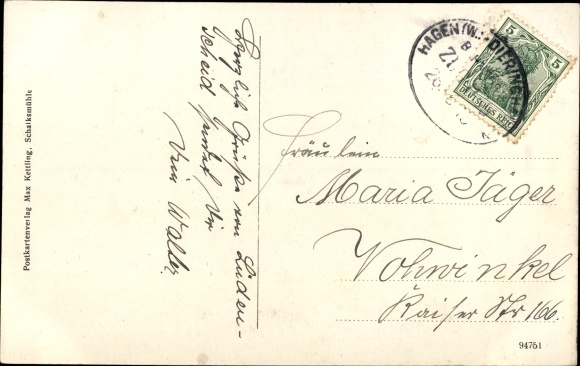 Postkartenverlag Max Kettling, Schalksmühle
Herzlich Grüße em Lüden-
scheid sendet Dir
Dein Walter
HAGEN (W.)-DIERINGH
5 5
DEUTSCHES REICH
Fräulein
Maria Jäger
Vohwinkel
Kaiser Str 166.
94751